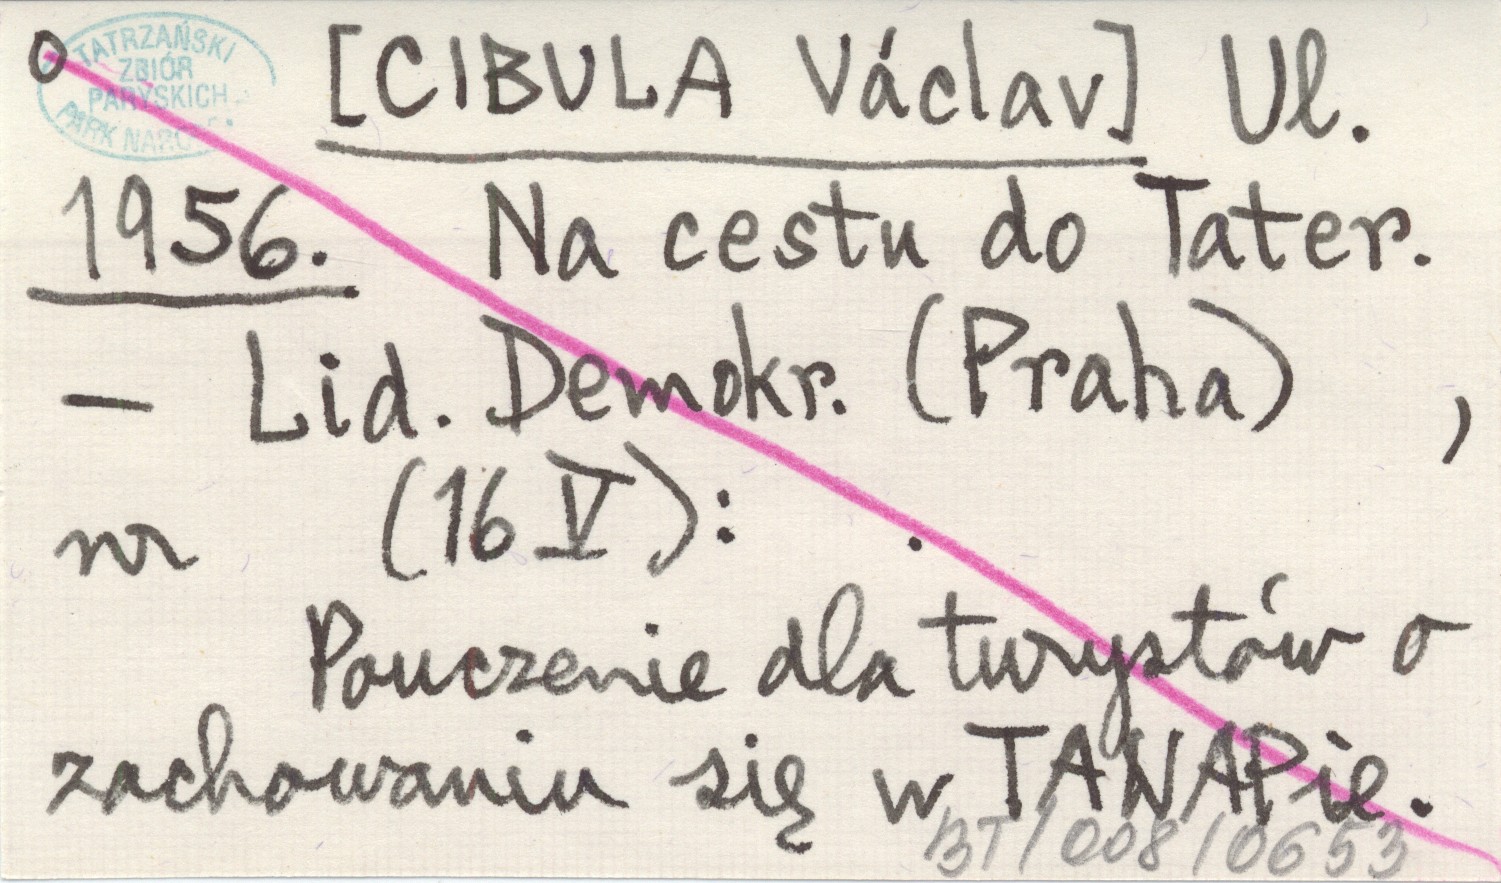 o
TATRZAŃSKI
ZBIÓR
PARYSKICH
PARK
[CIBULA Václav] Ul.
1956. Na cestu do Tater.
— Lid. Demokr. (Praha) ,
nr (16 V): .
Pouczenie dla turystów o
zachowaniu się w TANAPie.
BT/008/0653